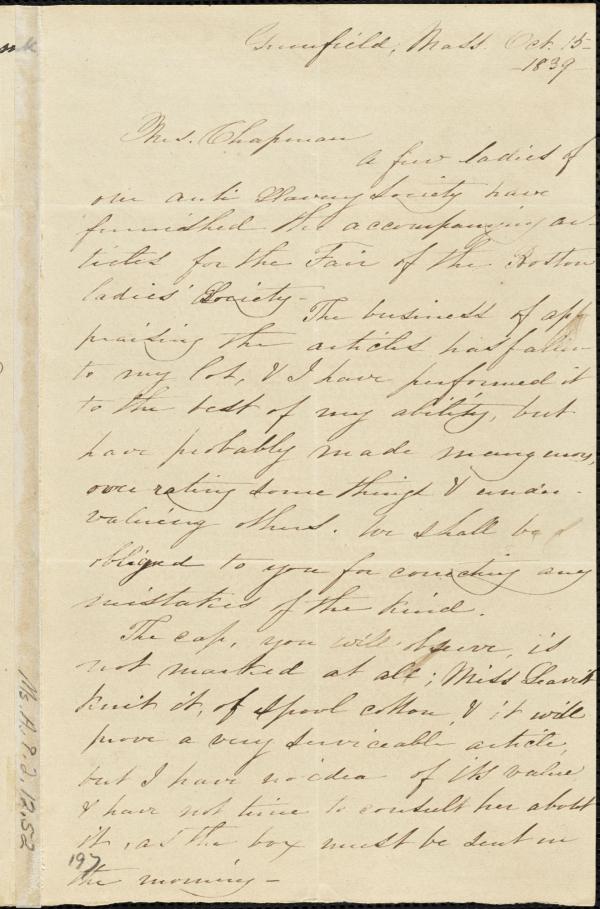 Greenfield, Mass. Oct. 15-
-1839-
Mrs. Chapman
A few ladies of
our anti Slavery Society have
furnished the accompanying ar-
ticles for the Fair of the Boston
ladies' Society-
The business of app
praising the articles has fallen
to my lot, & I have performed it
to the best of my ability, but
have probably made many errors,
over rating some things & under-
valuing others. We shall be
obliged to you for correcting any
mistakes of the kind.
The cap, you will observe, is
not marked at all; Miss Leavitt
knit it, of spool cotton, & it will
prove a very serviceable article,
but I have no idea of its value
& have not time to consult her about
it, as the box must be sent in
the morning-
197
Ms. A. 9. 2. 12. 52